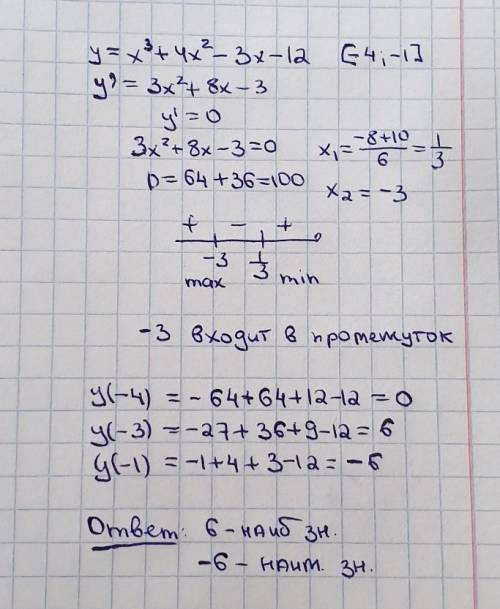 y = x³ + 4x² - 3x - 12 [-4; -1]
y' = 3x² + 8x - 3
y' = 0
3x² + 8x - 3 = 0 x₁ = (-8+10)/6 = 1/3
D = 64 + 36 = 100 x₂ = -3
+ - +
-3 1/3
max min
-3 входит в промежуток
y(-4) = -64+64+12-12 = 0
y(-3) = -27+36+9-12 = 6
y(-1) = -1+4+3-12 = -6
Ответ: 6 - наиб зн.
-6 - наим. зн.